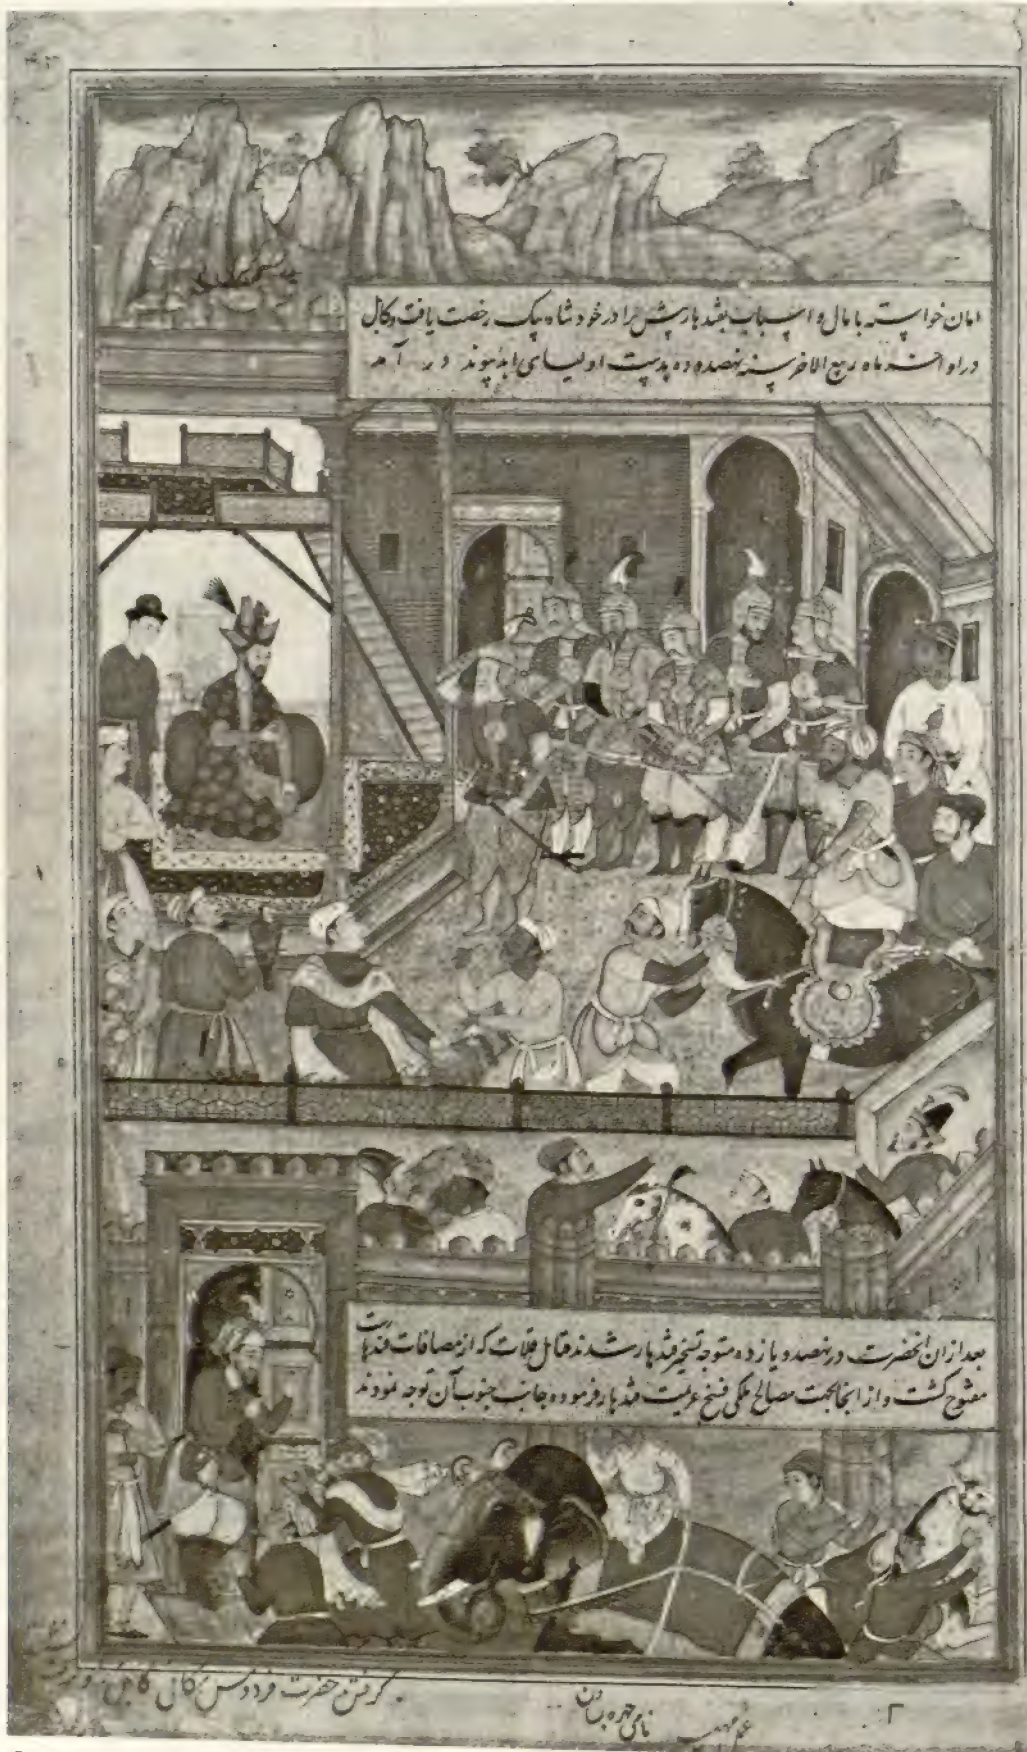 امان خواسته با مال و اسباب بقندهار پیش برادر خود شاه بیک رخصت یافت و کابل
در اواخر ماه ربیع الاخر سنه نهصد و ده بدست اولیای ابد پیوند در آمد
بعد ازان انحضرت در نهصد و یازده متوجه تسخیر قندهار شدند قتال قلات که از مضافات قندهارست
مفتوح کشت و از انجا بجهت مصالح ملکی فسخ عزیمت قندهار فرموده جانب جنوب آن توجه نمودند
کرفتن حضرت فردوس مکانی کابل
نامی چهره
عمل
۲